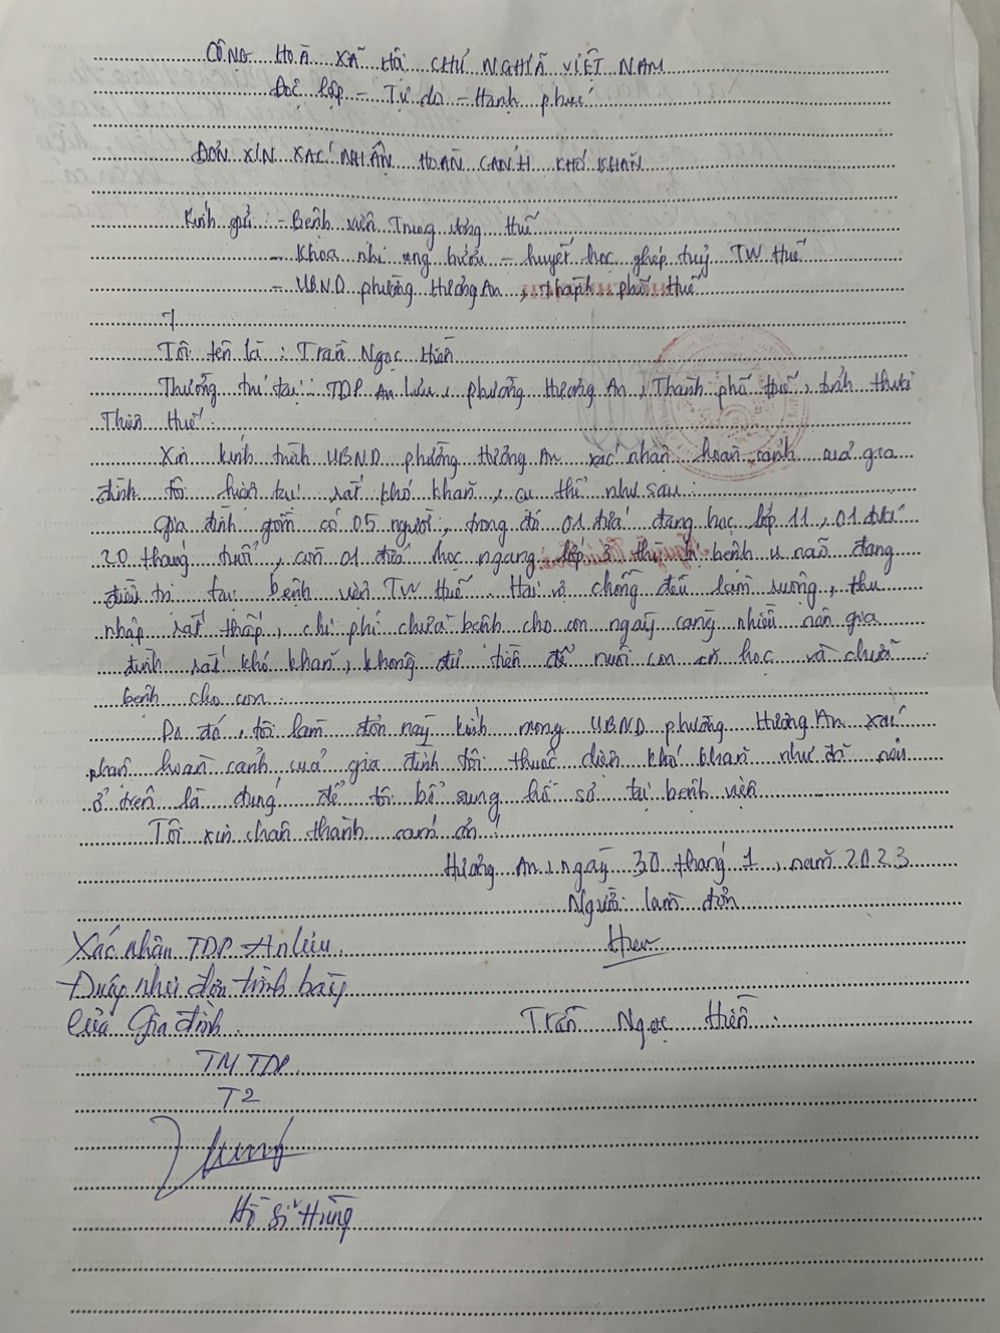 CỘNG HOÀ XÃ HỘI CHỦ NGHĨA VIỆT NAM
Độc lập - Tự do - Hạnh phúc
ĐƠN XIN XÁC NHẬN HOÀN CẢNH KHÓ KHĂN
Kính gửi: - Bệnh viện Trung ương Huế
- Khoa nhi ung bướu - huyết học ghép tuỷ TW Huế
- UBND phường Hương An, thành phố Huế
Tôi tên là: Trần Ngọc Hiền
Thường trú tại: TDP An Lưu, phường Hương An, Thành phố Huế, tỉnh thừa
Thiên Huế.
Xin kính trình UBND phường Hương An xác nhận hoàn cảnh của gia
đình tôi hiện tại rất khó khăn, cụ thể như sau:
Gia đình gồm có 05 người, trong đó 01 đứa đang học lớp 11, 01 đứa
20 tháng tuổi, còn 01 đứa học ngang lớp 3 thì bị bệnh u não đang
điều trị tại bệnh viện TW Huế. Hai vợ chồng đều làm ruộng, thu
nhập rất thấp, chi phí chữa bệnh cho con ngày càng nhiều nên gia
đình rất khó khăn, không đủ tiền để nuôi con ăn học và chữa
bệnh cho con.
Do đó, tôi làm đơn này kính mong UBND phường Hương An xác
nhận hoàn cảnh của gia đình tôi thuộc diện khó khăn như đã nêu
ở trên là đúng để tôi bổ sung hồ sơ tại bệnh viện
Tôi xin chân thành cảm ơn!
Hương An, ngày 30 tháng 1, năm 2023
Người làm đơn
Hiền
Trần Ngọc Hiền
Xác nhận TDP An lưu
Đúng như đơn trình bày
Của Gia đình
TM TDP
T2
Hồ Sĩ Hùng